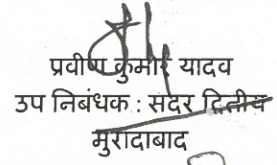 प्रवीण कुमार यादव
उप निबंधक : सदर द्वितीय
मुरादाबाद